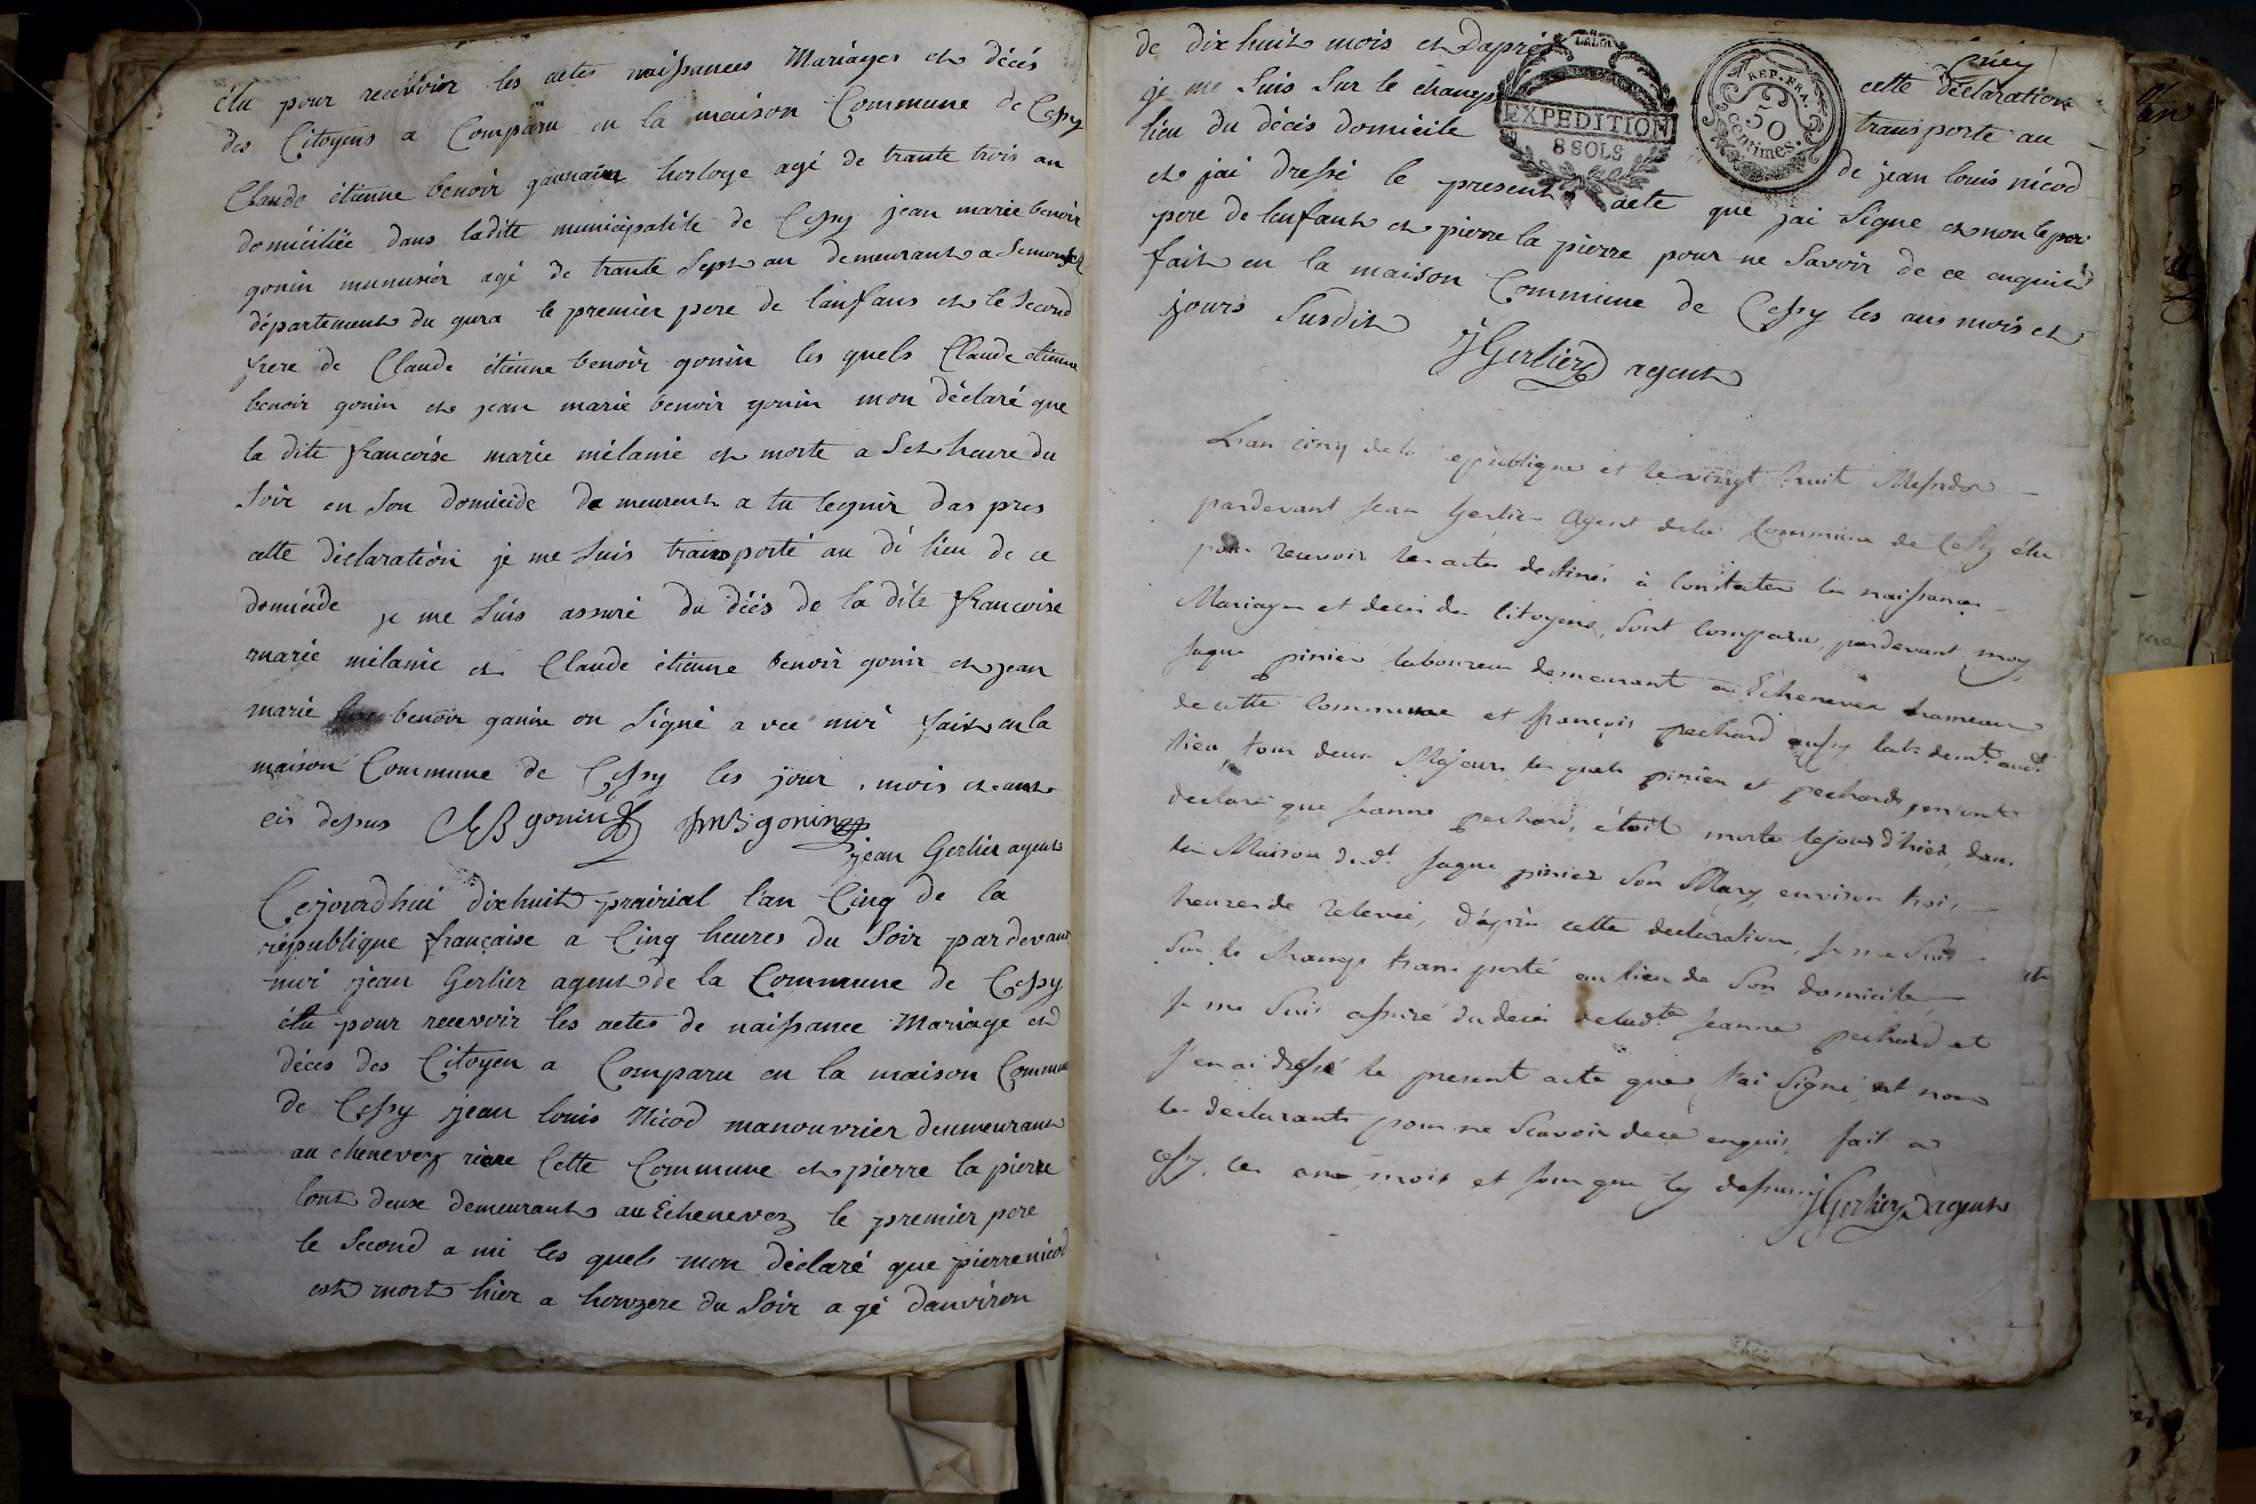 élu pour recevoir les actes naissances Mariages et décés
des Citoyens a Comparu en la maison Commune de Cessy
Claude étienne benoir gounain horloge agé de trante trois an
domiciliée dans ladite municipalite de Cessy jean marie benoir
gonin munusier agé de trante Sept an demeurant a
département du gura le premier pere de lanfans et le Second
frere de Claude étienne benoir gonin les quels Claude etienne
benoir gonin et jean marie benoir gonin mon déclaré que
la dite francoise marie mélanie et morte a Set heure du
Soir en Son domicide demeurent a tu das pres
cette déclaration je me Suis transporté au di lieu de ce
domicide je me Suis assuré du décés de la dite francoise
marie mélanie et Claude étienne benoir gonin et jean
marie benoir gonin on Signé a vec moi fait en la
maison Commune de Cessy les jour mois et ant
cis dessus CEB gonin JMB gonin
jean Gerlier agent
Cejourdhui dixhuit prairial l'an Cinq de la
république française a Cinq heures du Soir pardevant
moi jean Gerlier agent de la Commune de Cessy
élu pour recevoir les actes de naissance Mariage et
décés des Citoyen a Comparu en la maison Commune
de Cessy jean louis Nicod manouvrier deumeurant
au chenevez riere Cette Commune et pierre la pierre
tout deux demeurant au Echenevez le premier pere
le Second a mi les quels mon déclaré que pierre nicod
est mort hier a du Soir a gé danviron
de dix huit mois et Daprés cette déclaration
je me Suis Sur le champ transporte au
lieu du décés domicile de jean louis nicod
et jai dressé le present acte que jai Signe et non le
pere de lenfant et pierre la pierre pour ne Savoir de ce enquis
fait en la maison Commune de Cessy les ans mois et
jours Susdit JGerlier agent
LALOI
EXPEDITION
8 SOLS
REP. FRA.
50
centimes.
L'an cinq de la republique et le vingt huit Messidor
pardevant Jean Gerlier Agent de la Commune de Cessy élu
pour recevoir les actes destinés à Constater les naissances
Mariages et deces des Citoyens, Sont Comparu, pardevant moy
Jaque pinier laboureur demeurant au Echenevex hameau
de cette Commune et françois pechard aussy lab. demt. audt.
lieu, tous deux Majeurs les quels pinier et pechard, mont
declaré que Jeanne pechard, étoit morte le jour d'hier, dans
la Maison dudt. Jaque pinier Son Mary, environ trois
heures de relevée, D'après cette declaration, Je me Suis
Sur le champ transporté au lieu de Son domicile, et
Je me Suis assuré du decés de ladte. Jeanne pechard et
J'en ai dressé le present acte que J'ai Signé, et non
les declarants pour ne Scavoir de ce enquis, fait a
Cessy, les ans mois et Jour que cy dessus JGerlier agent